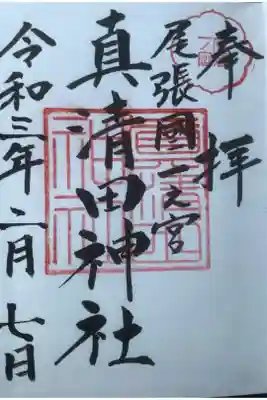 奉拝
尾張國一之宮
真清田神社
令和三年二月七日